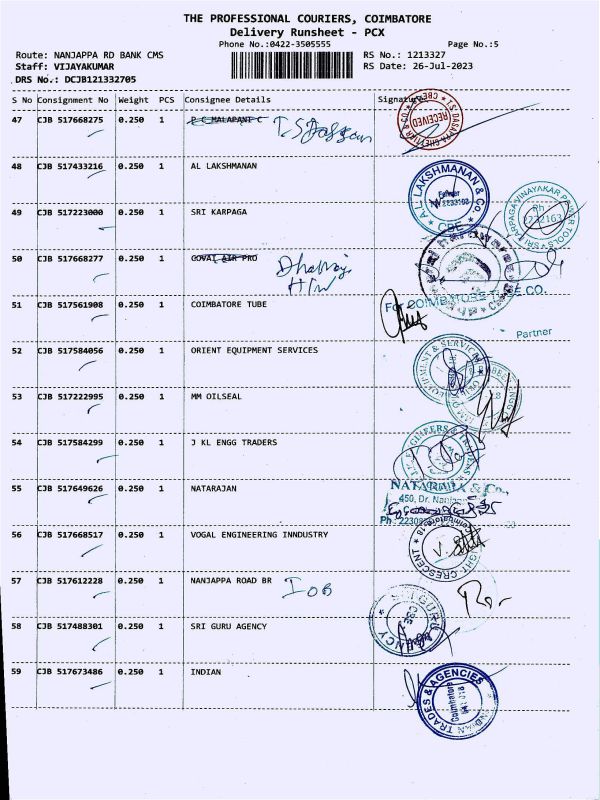 THE PROFESSIONAL COURIERS, COIMBATORE
Delivery Runsheet - PCX
Phone No.:0422-3505555
Page No.:5
Route: NANJAPPA RD BANK CMS
RS No.: 1213327
Staff: VIJAYAKUMAR
RS Date: 26-Jul-2023
DRS No.: DCJB121332705
S No Consignment No Weight PCS Consignee Details Signature
47 CJB 517668275 0.250 1 P C MALAPANT C
RECEIVED
48 CJB 517433216 0.250 1 AL LAKSHMANAN
A.L. LAKSHMANAN & Co.
CBE
49 CJB 517223000 0.250 1 SRI KARPAGA
SRI KARPAGA VINAYAKAR POWER TOOLS
50 CJB 517668277 0.250 1 COVAI AIR PRO
H/W
51 CJB 517561908 0.250 1 COIMBATORE TUBE
For COIMBATORE TUBE CO.
Partner
52 CJB 517584056 0.250 1 ORIENT EQUIPMENT SERVICES
53 CJB 517222995 0.250 1 MM OILSEAL
54 CJB 517584299 0.250 1 J KL ENGG TRADERS
55 CJB 517649626 0.250 1 NATARAJAN
NATARAJA & Co.,
450, Dr.
56 CJB 517668517 0.250 1 VOGAL ENGINEERING INNDUSTRY
57 CJB 517612228 1 0.250 1 NANJAPPA ROAD BR IOB
58 CJB 517488301 0.250 1 SRI GURU AGENCY
59 CJB 517673486 0.250 1 INDIAN
INDIAN TRADES & AGENCIES
Coimbatore